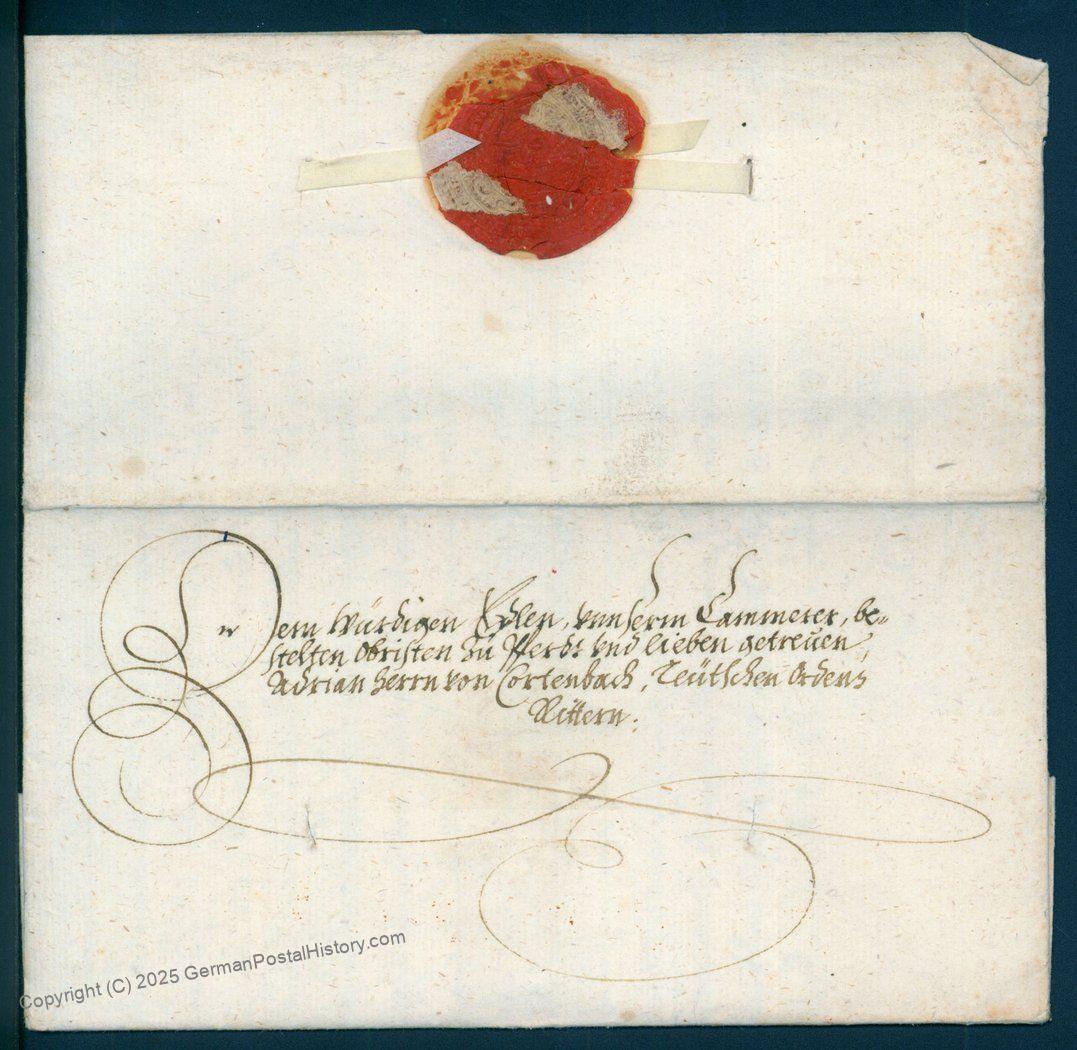 Dem Würdigen Edlen, unnserm Cammerer, be-
stelten Obristen zu Pferdt und lieben getreuen,
Adrian Herrn von Cortenbach, Teütschen Ordens
Rittern.
Copyright (C) 2025 GermanPostalHistory.com